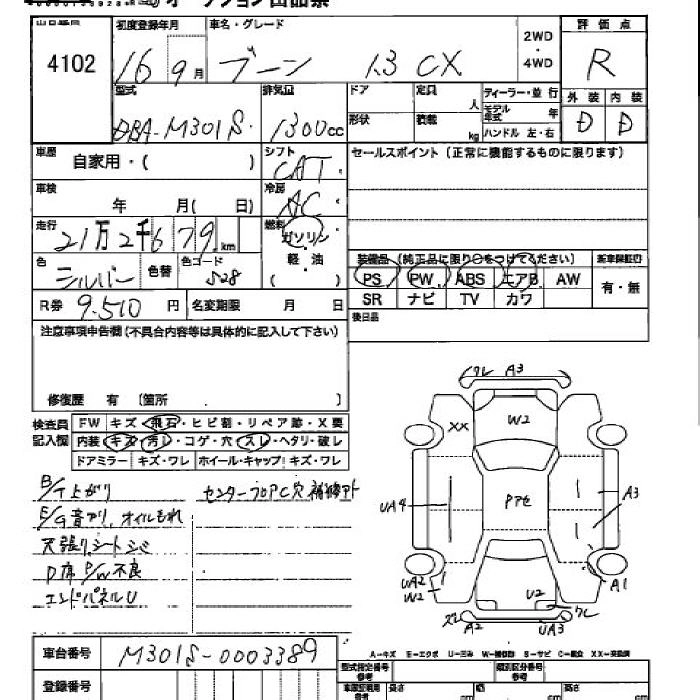 オークション出品票
4102
初度登録年月 車名・グレード 2WD ・ 4WD 評価点
16 9月 ブーン 1.3 CX R
型式 排気量 ドア 定員 人 ディーラー・並行 外装 内装
DBA-M301S 1300cc 形状 積載 kg モデル年式 年 D D
ハンドル 左・右
車歴 自家用・( ) シフト CAT セールスポイント(正常に機能するものに限ります)
車検 年 月( 日) 冷房 AC
走行 21万2千679km 燃料 ガソリン
軽・油
( )
色 シルバー 色替 色コード S28
装備品(純正品に限り○をつけてください) 新車保証書
PS PW ABS エアB AW 有・無
SR ナビ TV カワ
R券 9.510円 名変期限 月 日
後日品
注意事項申告欄(不具合内容等は具体的に記入して下さい)
修復歴 有 (箇所 )
検査員記入欄 FW キズ・飛石・ヒビ割・リペア跡・X要
内装・キズ・汚レ・コゲ・穴・スレ・ヘタリ・破レ
ドアミラー キズ・ワレ ホイール・キャップ キズ・ワレ
B/T上がり センターフロアC穴補修アト
E/G音アリ、オイルもれ
天張り、シートシミ
D席P/W不良
エンドパネルU
ワレ A3
XX W2
UA4 Pアセ A3
UA2 W2 U2 A1
ズレ A2 UA3 ワレ
A-キズ E-エクボ U-凹み W-補修跡 S-サビ C-腐食 XX-交換済
車台番号 M301S-0003389
登録番号
型式指定番号 参考 類別区分番号 参考
長さ cm 幅 cm 高さ cm